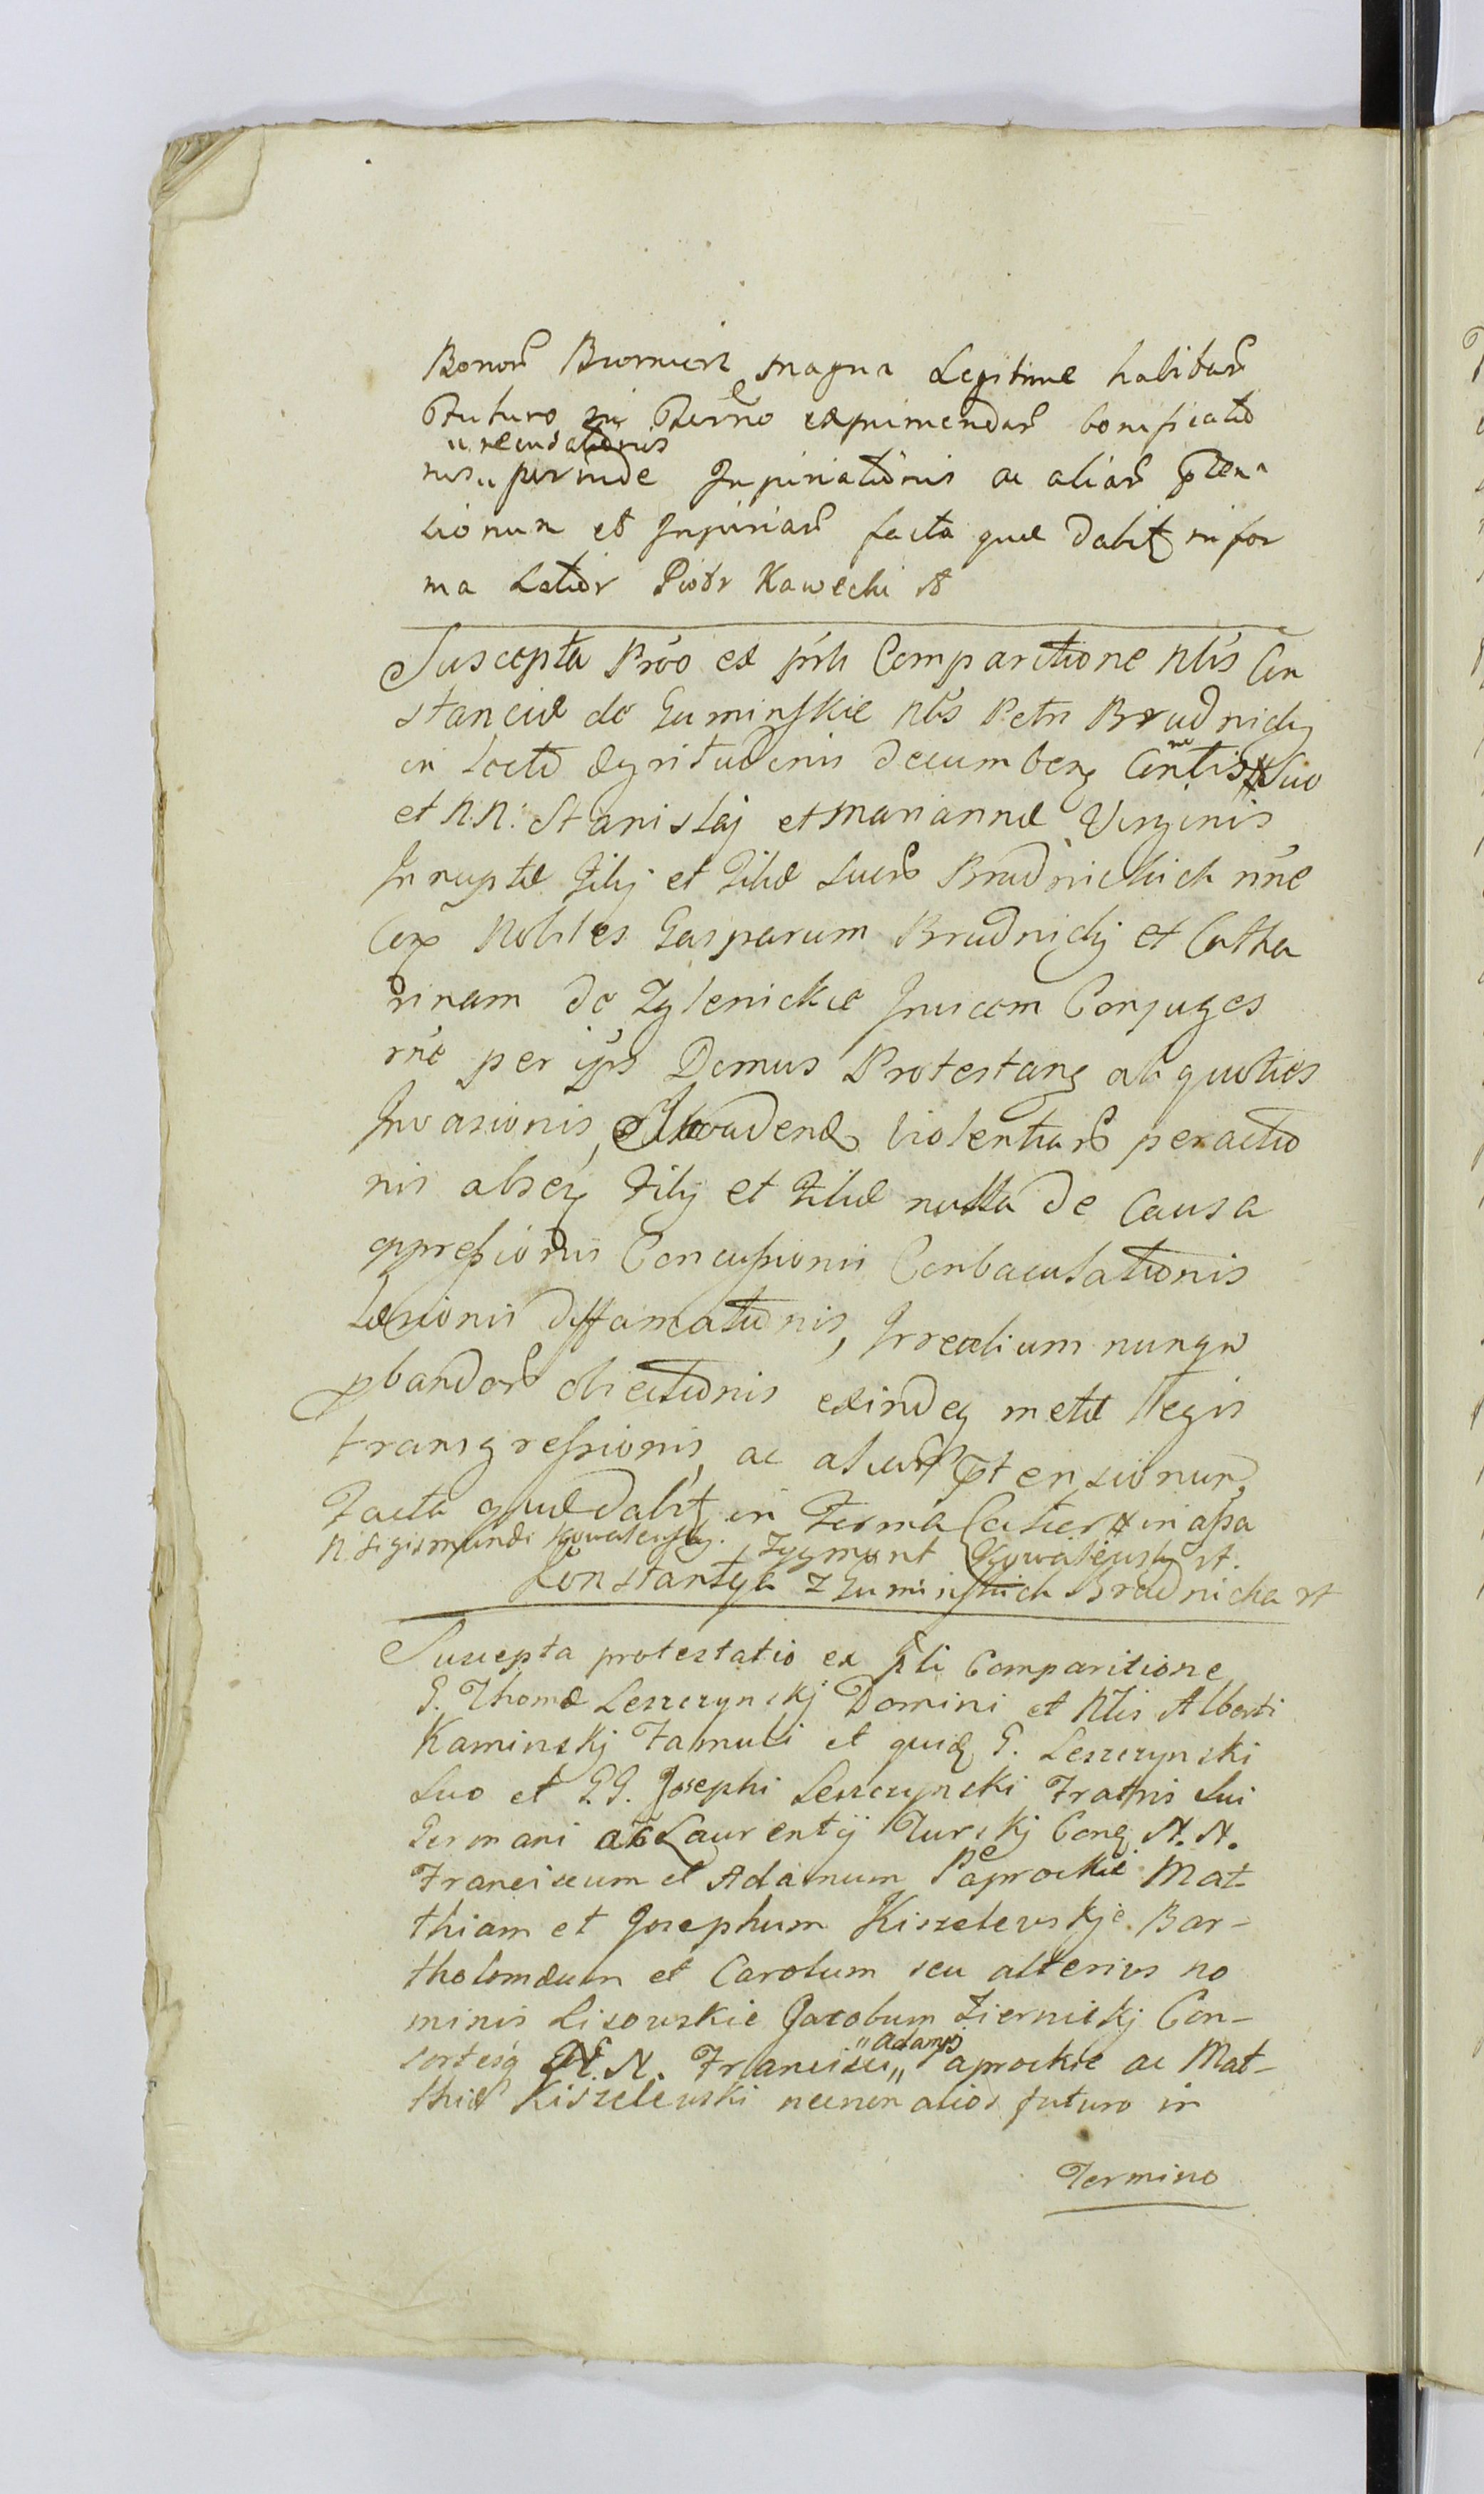 Bonor Magna Legitime habitar
Futuro in Termo exprimendar bonificatio
"recusationis
nis" perinde Injuriationis ac aliar pten
sionum et Injuriar facta quæ dabit in for
ma Latior Piotr Kawecki st
Suscepta Prõo ex prñti Comparitione Nblis Con
stanciæ de Guminskie Nblis Petri Brudnicky
in Lecto ægritudinis decumben Contis Suo
et N.N. Stanislaj et Mariannæ Virginis
Innuptæ Filij et Filiæ Suar Brudnickich nñe
Cora Nobiles Gasparum Brudnicky et Catha
rinam de Zylenickie Invicem Conjuges
rñe per ips Domus Protestan aliquoties
Invasionis, violentiar peractio
nis absq Filij et Filiæ nulla de Causa
oppressionis Concussionis Conbaculationis
læsionis diffamationis, Irrealium nunqu
pbandor obiectionis exindeq metæ Legis
transgressionis, ac aliar Ptensionum
Facta quæ dabit in Forma Latior in assa
N. Sigismundi Kowalewsky. Zygmunt Kowalewsky st.
Konstantyia z Guminskich Brudnicka st
Suscepta protestatio ex pñti Comparitione
G. Thomæ Leszczynskj Domini et Nblis Alberti
Kaminskj Famuli et quid G. Leszczynski
Suo et GG. Josephi Leszczynski Fratris Sui
Germani ac Laurentij Turskj Con N. N.
Franciscum et Adamum Paprockie Mat
thiam et Josephum Kiszelewskje Bar-
tholomæum et Carolum seu alterius no
minis Lisowskie Jacobum Ziernickj Con-
"Adami
sortesq N. N. Francisci" Paprockie ac Mat-
thiæ Kiszelewski necnon alios futuro in
Termino